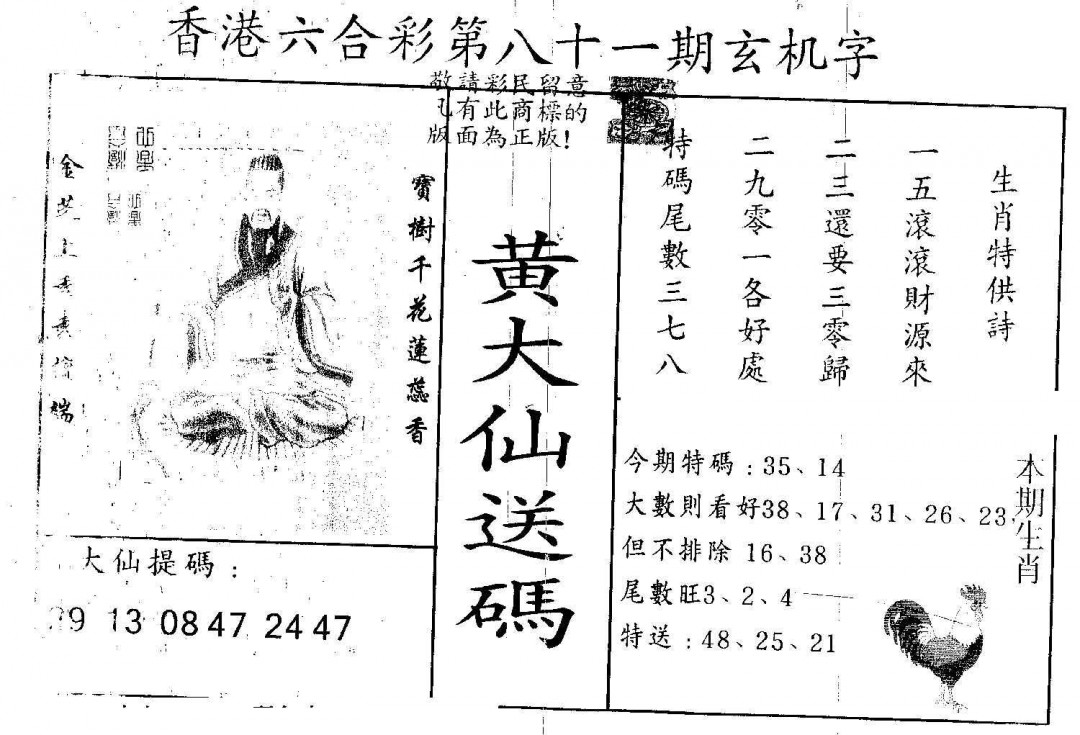 香港六合彩第八十一期玄机字
敬請彩民留意
有此商標的
版面為正版!
寶樹千花蓮蕊香
黄大仙送碼
大仙提碼：
9 13 08 47 24 47
生肖特供詩
一五滾滾財源來
二三還要三零歸
二九零一各好處
特碼尾數三七八
今期特碼：35、14
大數則看好38、17、31、26、23
但不排除 16、38
尾數旺3、2、4
特送：48、25、21
本期生肖